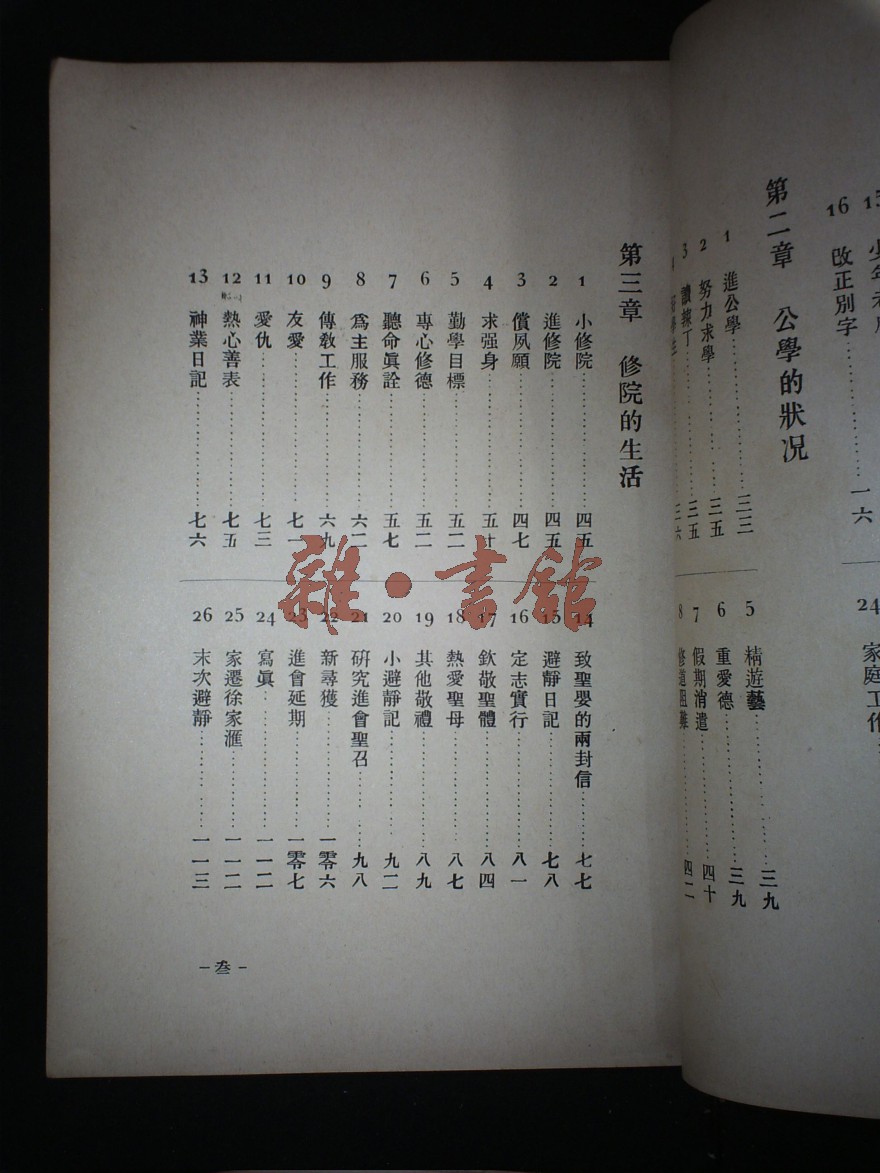 16 改正別字 一六
24 家庭工作
第二章 公學的狀况
1 進公學 三三
2 努力求學 三五
3 讀拉丁 三五
三六
5 精遊藝 三九
6 重愛德 三九
7 假期消遣 四十
8 修道阻難 四二
第三章 修院的生活
1 小修院 四五
2 進修院 四五
3 償夙願 四七
4 求强身 五十
5 勤學目標 五二
6 專心修德 五二
7 聽命眞詮 五七
8 爲主服務 六二
9 傳敎工作 六九
10 友愛 七一
11 愛仇 七三
12 熱心善表 七五
13 神業日記 七六
14 致聖嬰的兩封信 七七
15 避靜日記 七八
16 定志實行 八一
17 欽敬聖體 八四
18 熱愛聖母 八七
19 其他敬禮 八九
20 小避靜記 九二
21 硏究進會聖召 九八
22 新尋獲 一零六
23 進會延期 一零七
24 寫眞 一一二
25 家遷徐家滙 一一二
26 末次避靜 一一三
-叁-
雜·書館